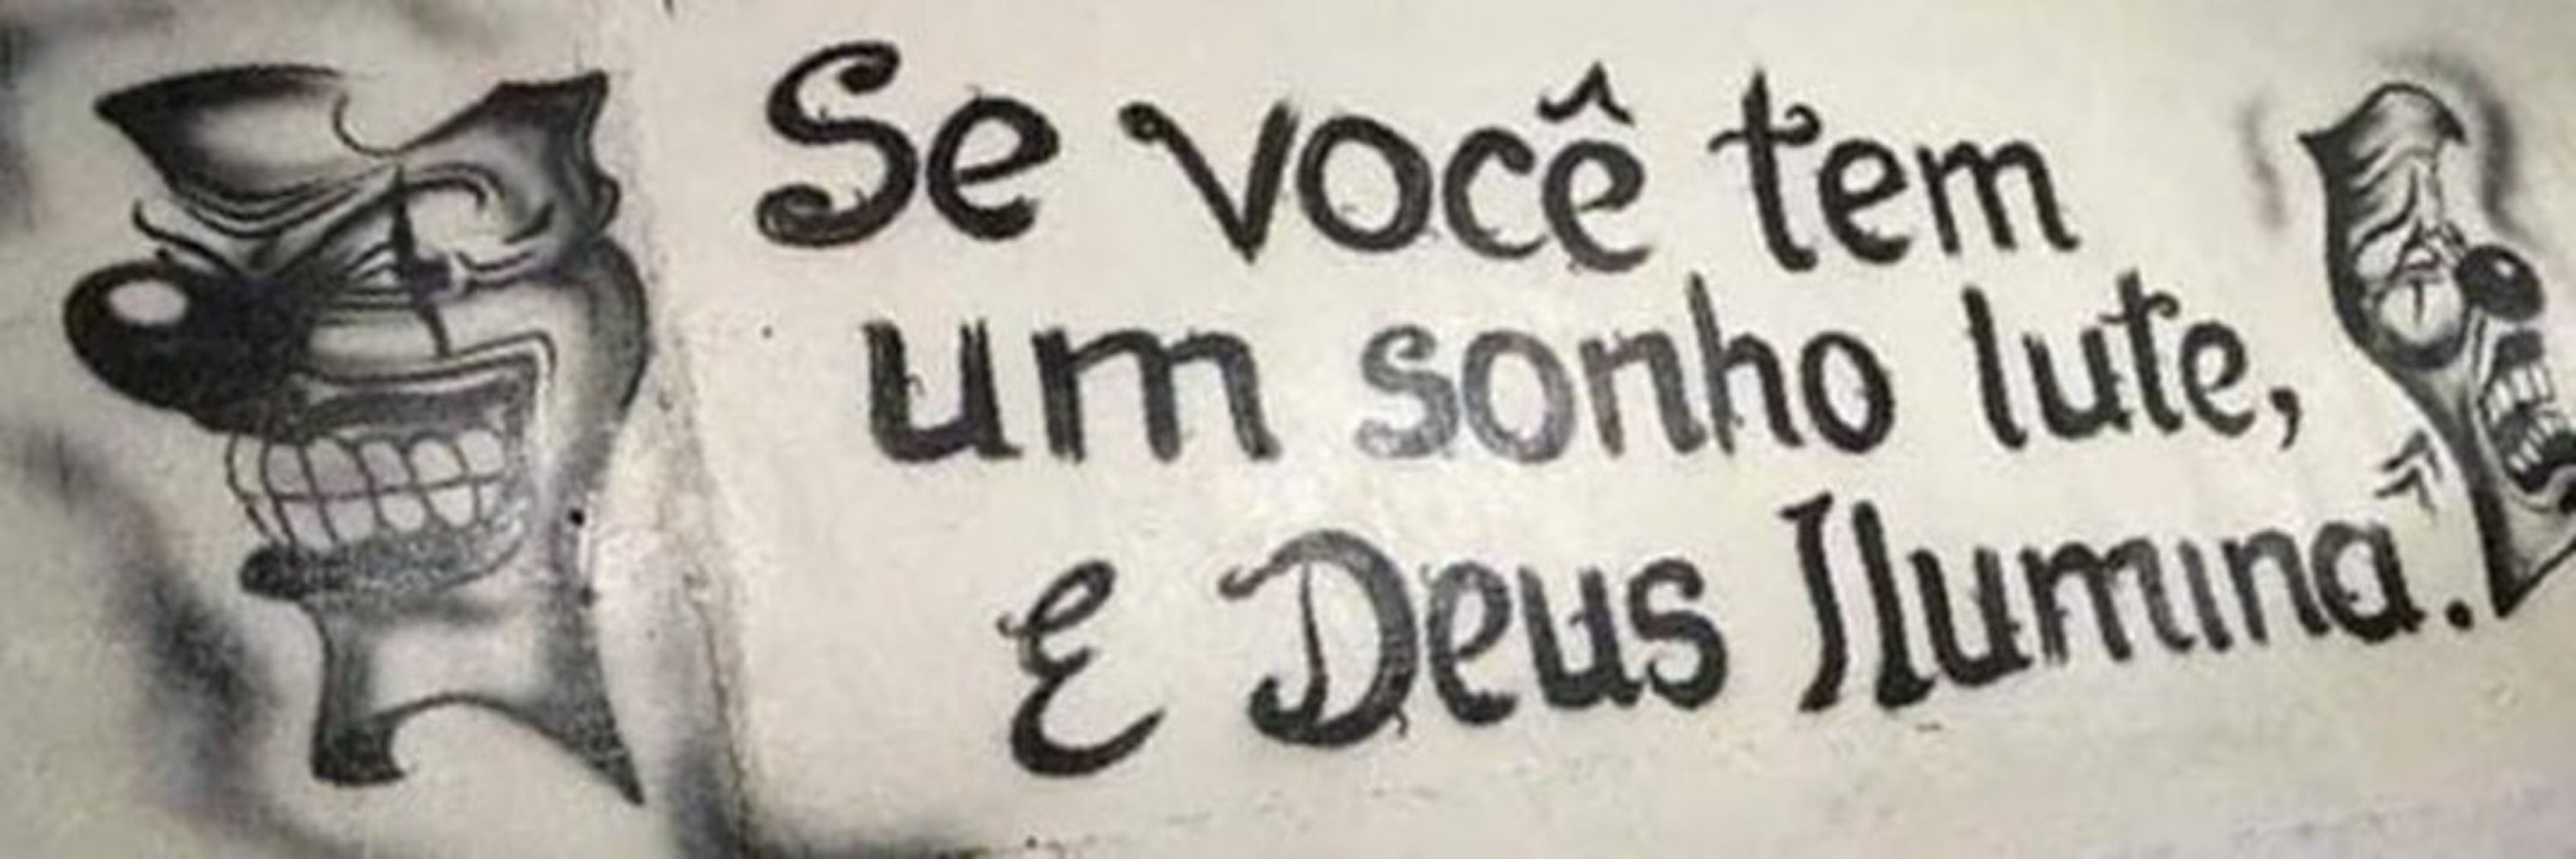 Se você tem
um sonho lute,
E Deus Ilumina."